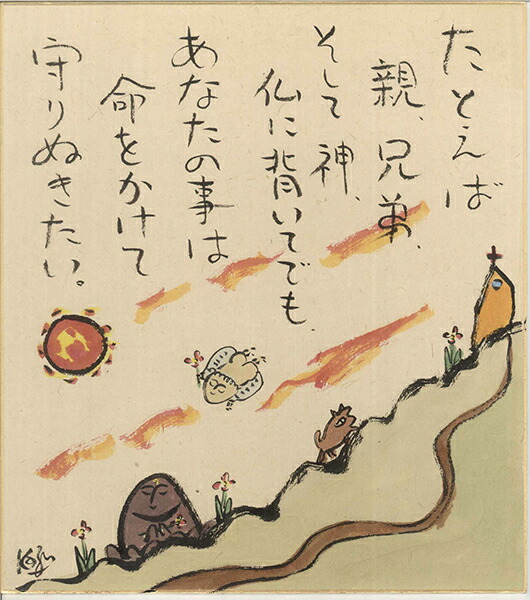 たとえば
親、兄弟、
そして神、
仏に背いてでも、
あなたの事は
命をかけて
守りぬきたい。